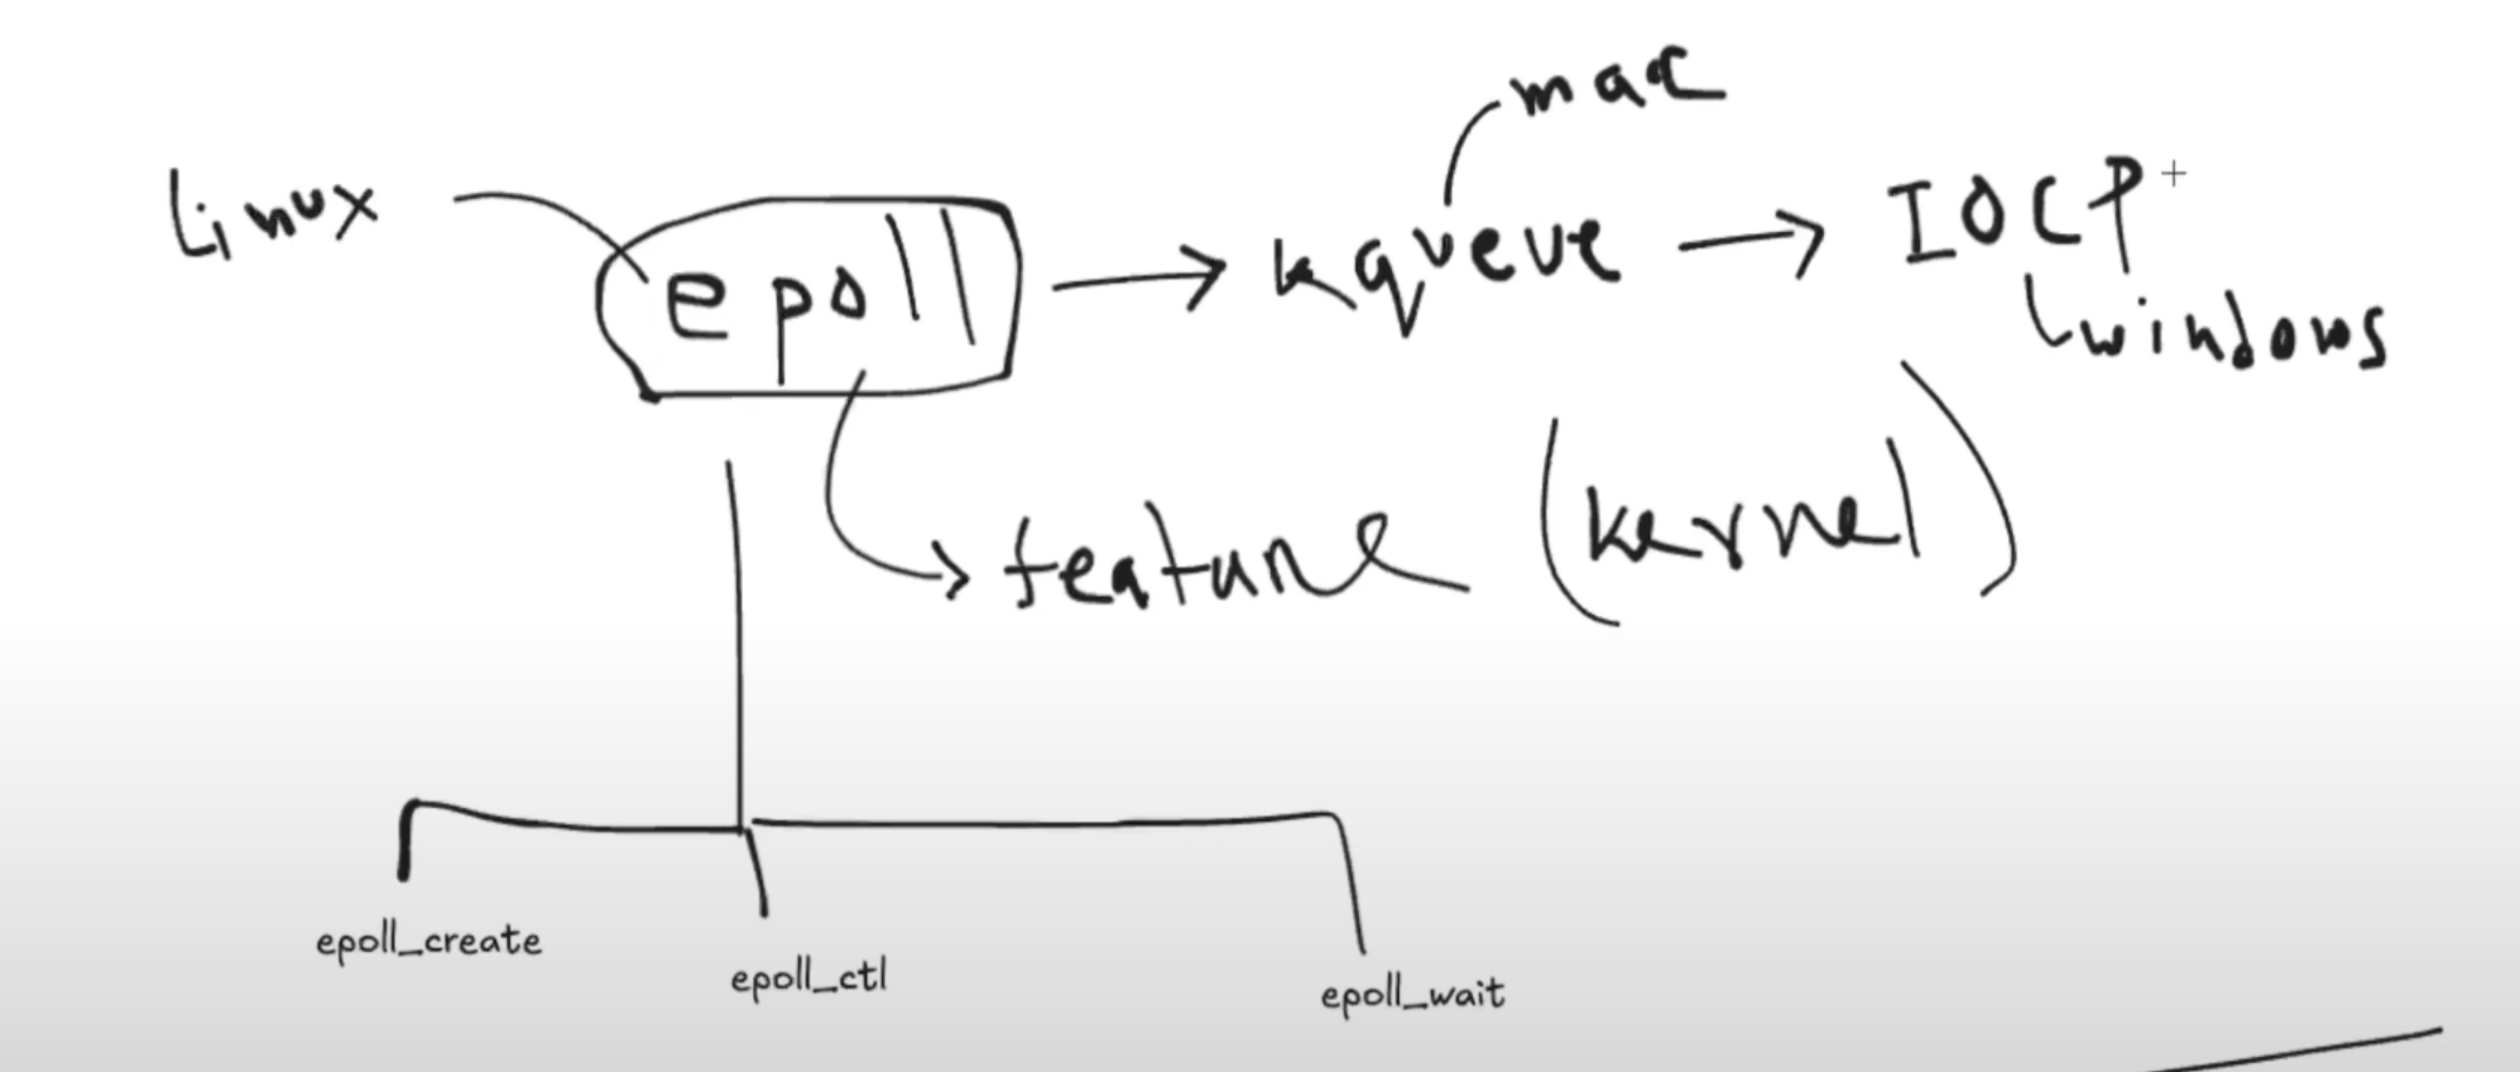 mac
Linux
epoll
kqueue
IOCP
windows
feature (kernel)
epoll_create
epoll_ctl
epoll_wait